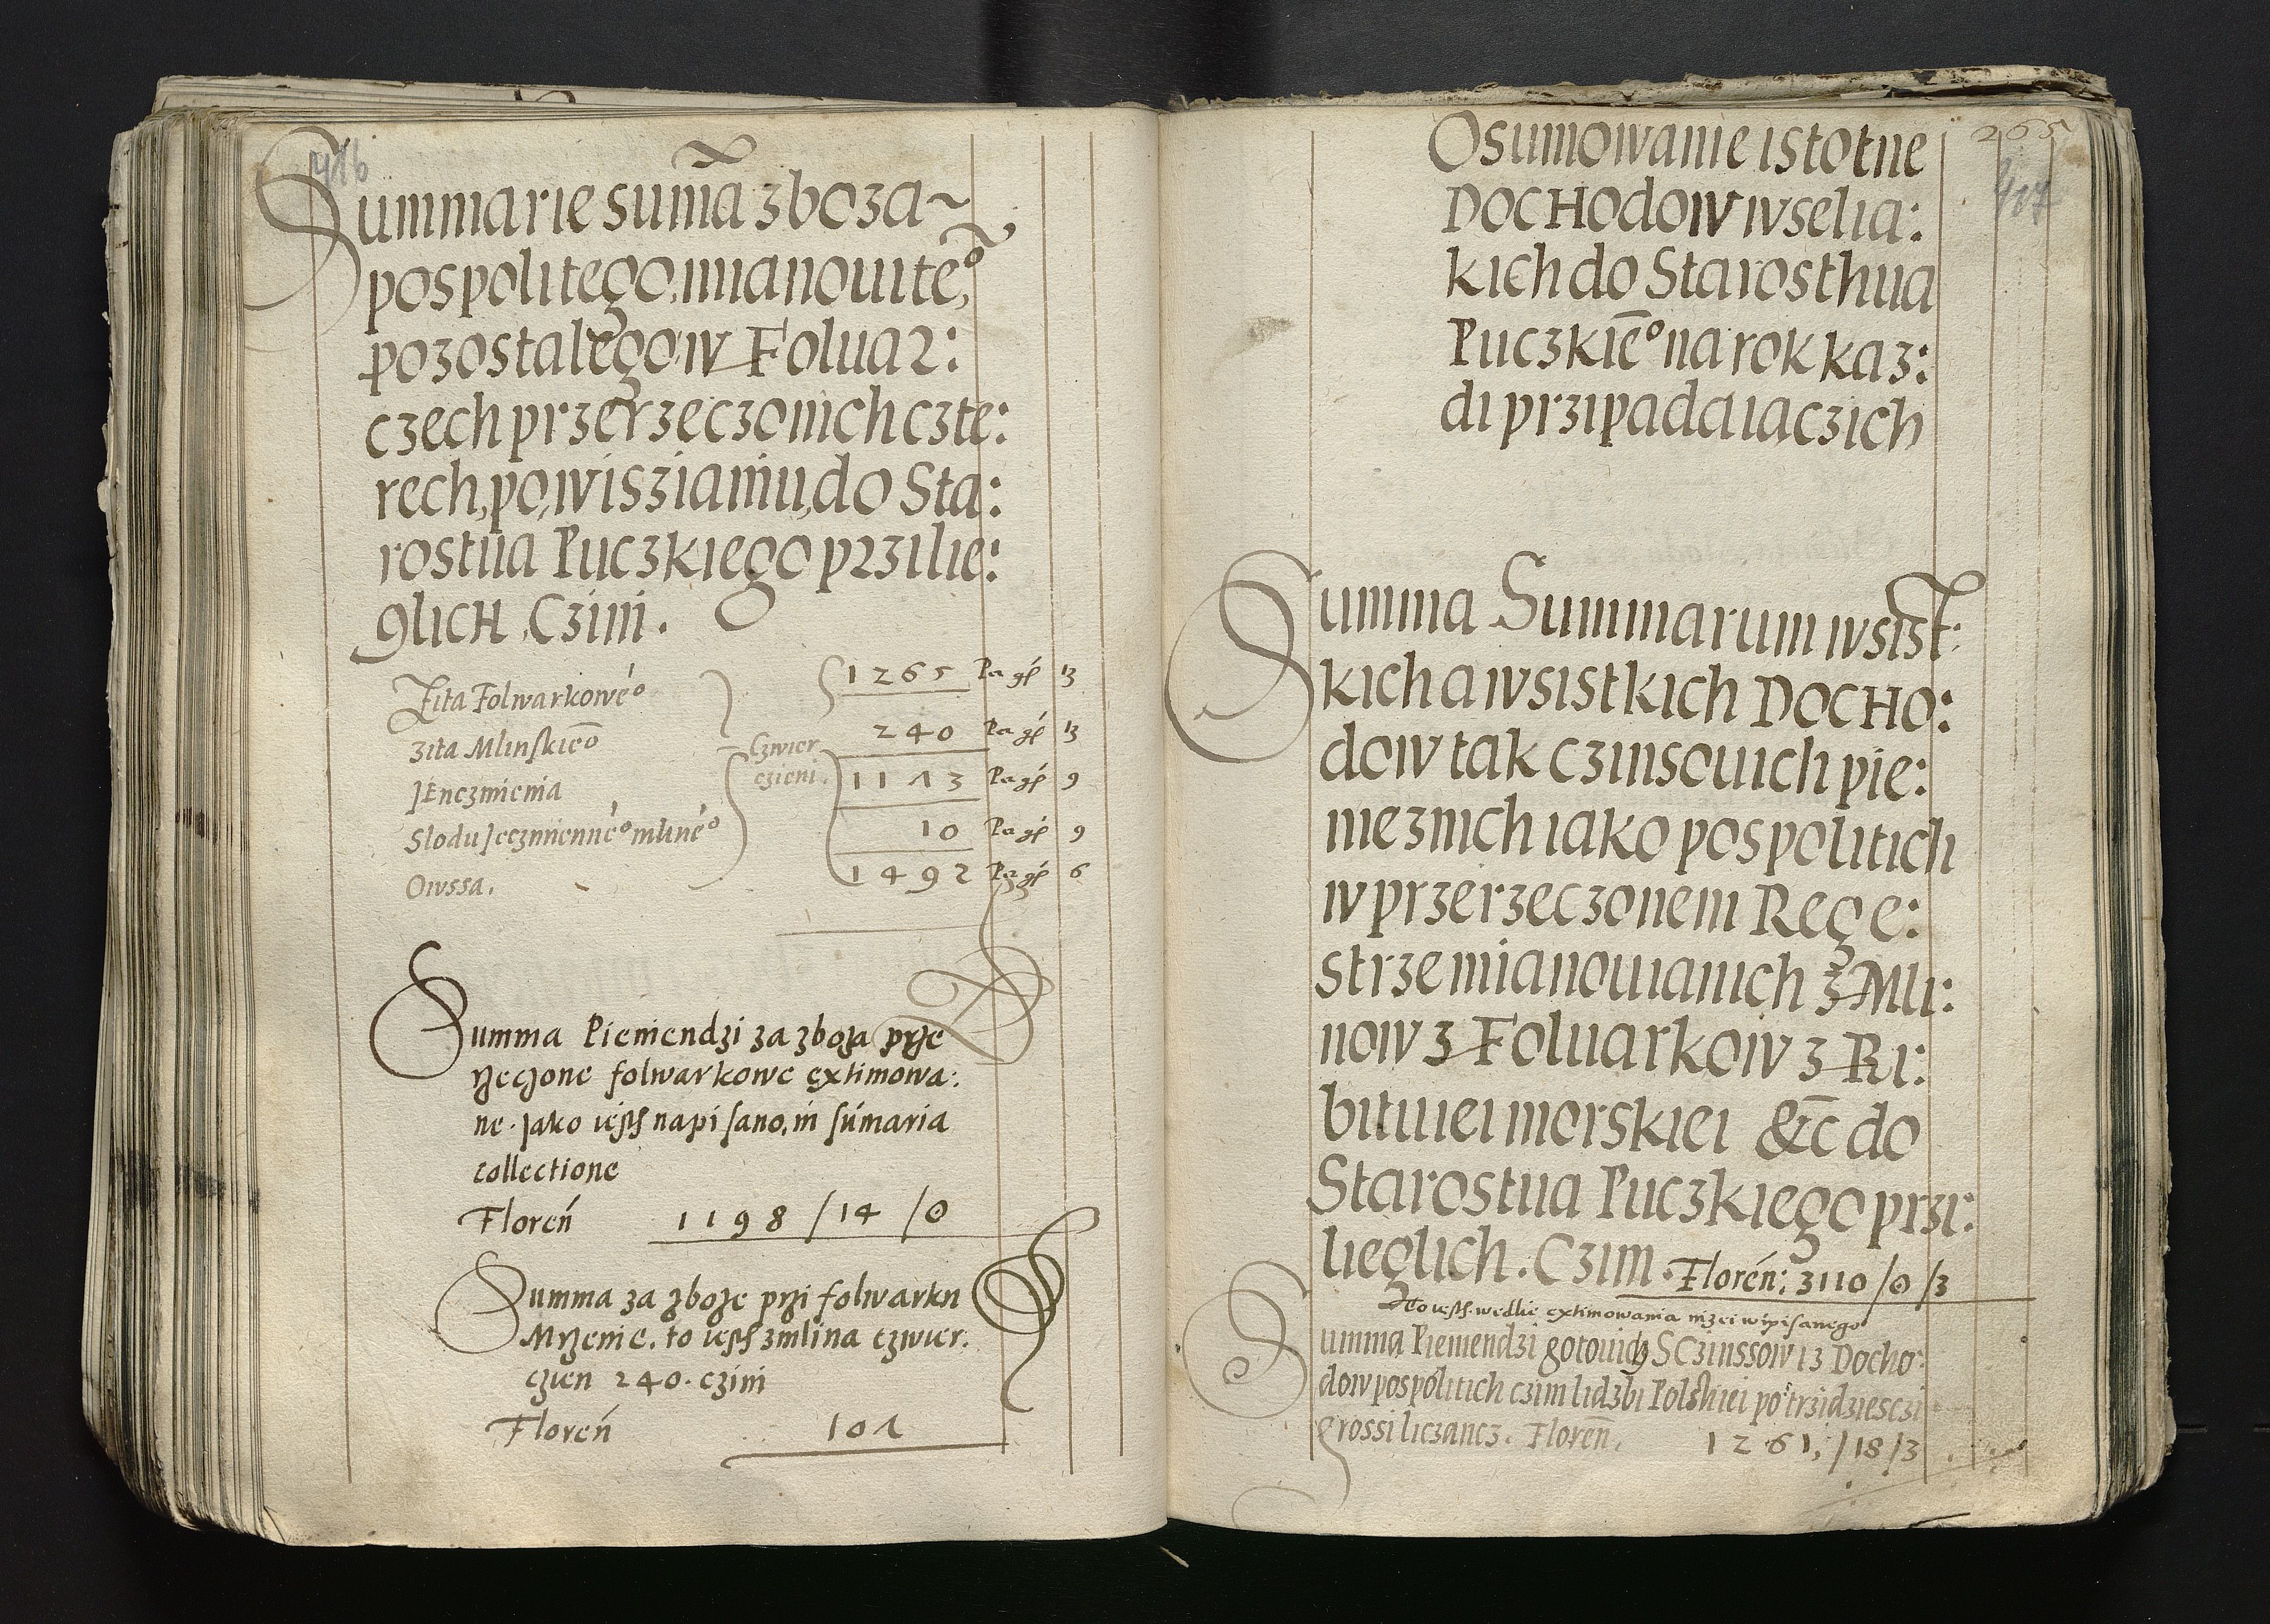 416
Summarie sum̃a zboza~
pospolitego, mianouite°,
pozostalego w Foluar:
czech przerzeczonich czte:
rech, po wiszianiu, do Sta:
rostua Puczkiego przilie:
glich, Czini.
Zita Folwarkowé° 1265 Pa gł 13
zita Mlinskie͞o 240 Pa gł 13
Czwier
czieni.
JEnczmienia 1113 Pa gł 9
Slodu Jeczmienné° mliné° 10 Pa gł 9
Owssa. 1492 Pa gł 6
Summa Pieniendzi za zboza prze
rzeczone folwarkowe extimowa:
ne. Jako iesth napisano, in sum̃aria
collectione
Floreń 1198 /14 /0
Summa za zboze przi folwarku
Mrzenie. to iesth z mlina czwier.
czien 240. czini
Floreń 101
265
407
Osumowanie istotne
DOCHodow wselia:
kich do Starosthua
Puczkie͞° na rok kaz:
di przipadaiaczich
Summa Summarum wsist:
kich a wsistkich DOCHO:
dow tak czinsouich pie:
nieznich iako pospolitich
w przerzeczonem Rege:
strze mianouianich z Mli:
now z Foluarkow z Ri:
bitwiei morskiei &c̄ do
Starostua Puczkiego przi:
lieglich. Czini. Floreń: 3110 /0 /3
To iesth. wedlie extimowania nizei wipisanego
Summa Pieniendzi gotouich S Czinssow iz Docho:
dow pospolitich czini lidzbi Polskiei po trzidziesczi
grossi liczancz. Floreñ. 1261. /18 /3